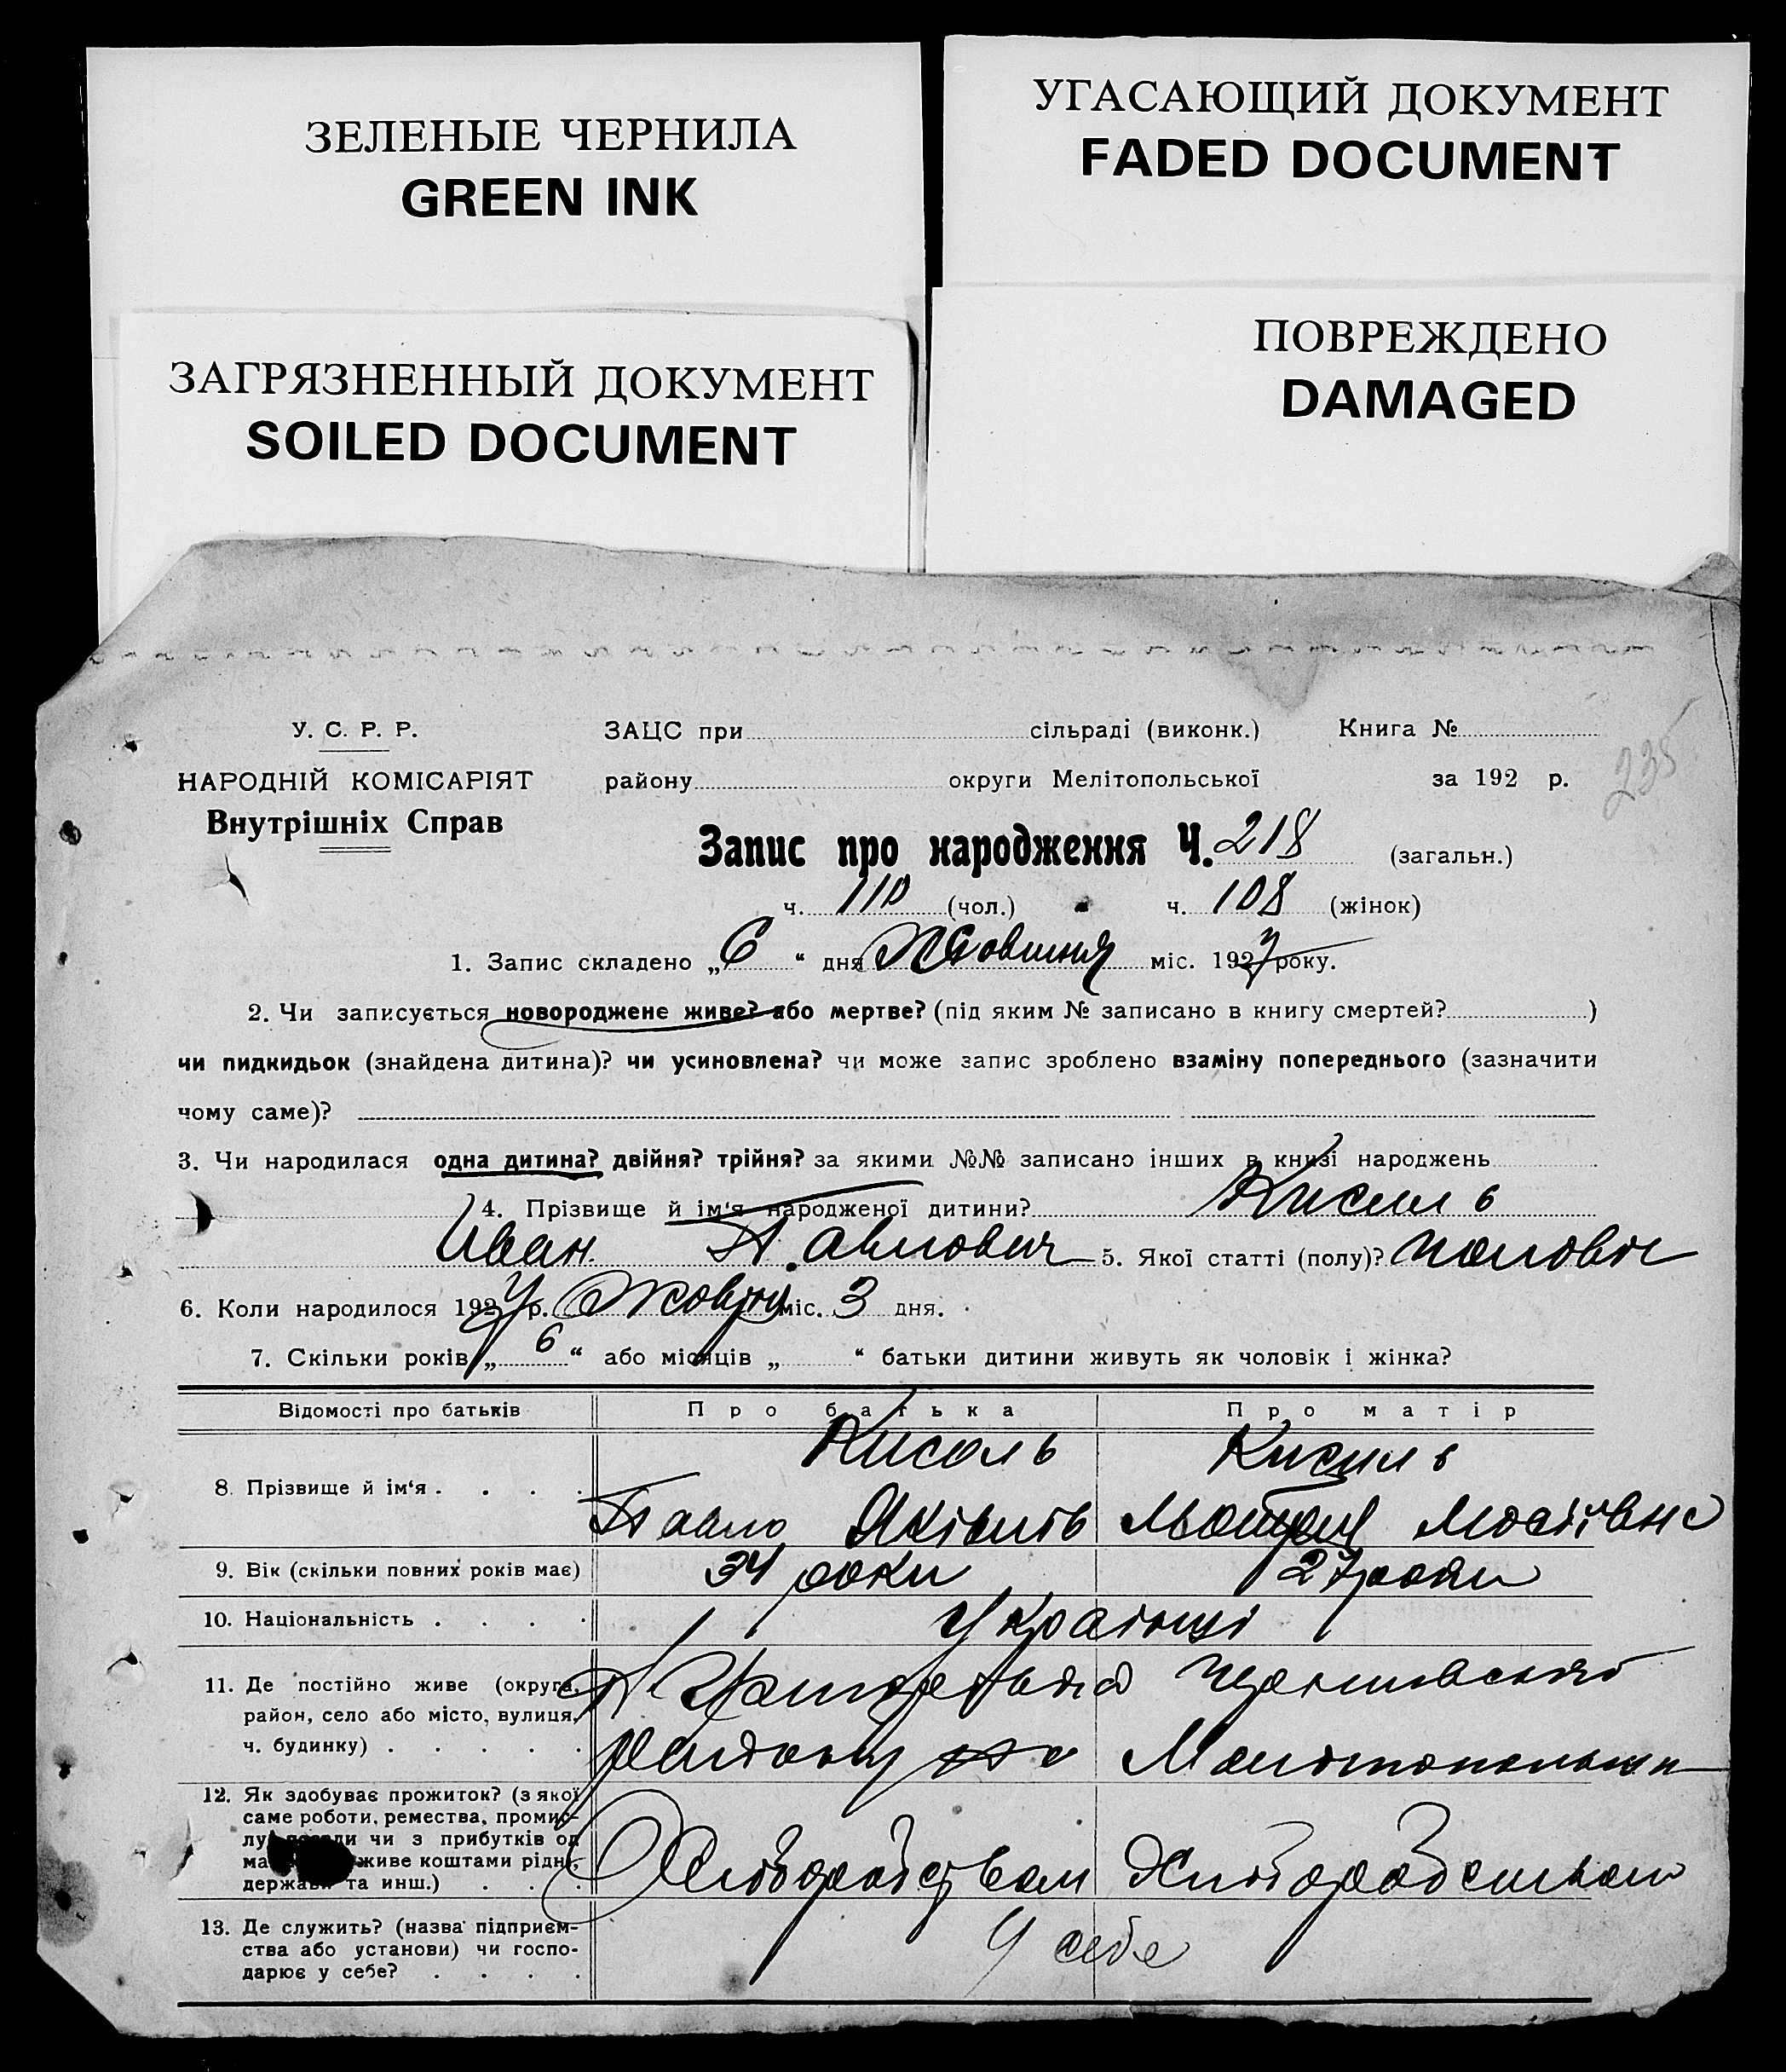 ЗЕЛЕНЫЕ ЧЕРНИЛА
GREEN INK
УГАСАЮЩИЙ ДОКУМЕНТ
FADED DOCUMENT
ЗАГРЯЗНЕННЫЙ ДОКУМЕНТ
SOILED DOCUMENT
ПОВРЕЖДЕНО
DAMAGED
У. С. Р. Р. ЗАЦС при сільраді (виконк.) Книга №
235
НАРОДНІЙ КОМІСАРІЯТ району округи Мелітопольської за 192 р.
Внутрішніх Справ
Запис про народження Ч. 218 (загальн.)
ч. 110 (чол.) ч. 108 (жінок)
1. Запис складено „6“ дня Жовтня міс. 1927 року.
2. Чи записується новороджене живе? або мертве? (під яким № записано в книгу смертей? )
чи пидкидьок (знайдена дитина)? чи усиновлена? чи може запис зроблено взаміну попереднього (зазначити
чому саме)?
3. Чи народилася одна дитина? двійня? трійня? за якими №№ записано інших в книзі народжень
4. Прізвище й ім‘я народженої дитини? Кисель
Иван Павлович 5. Якої статті (полу)? чолов
6. Коли народилося 1927 р. Жовтня міс. 3 дня.
7. Скільки років „6“ або місяців „ “ батьки дитини живуть як чоловік і жінка?
Відомості про батьків Про батька Про матір
Кисель Кисель
8. Прізвище й ім‘я . . . .
Павло Мотря
9. Вік (скільки повних років має) 34 роки 27 роки
10. Національність . . . . Українці
11. Де постійно живе (округа,
район, село або місто, вулиця, району на Мелітопольщи
ч. будинку) . . . . .
12. Як здобуває прожиток? (з якої
саме роботи, ремества, промис-
лу, посади чи з прибутків од
живе коштами рідні, Хліборобством Хліборобством
держави та инш.) . . .
13. Де служить? (назва підприєм- У себе
ства або установи) чи госпо-
дарює у себе? . . . .